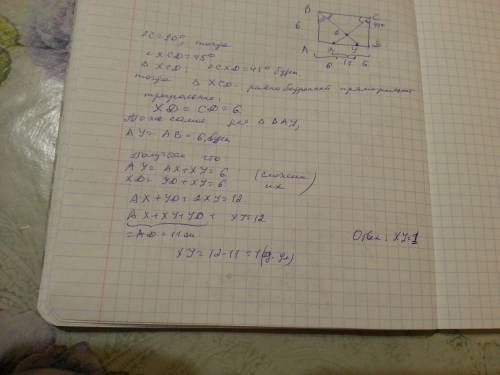 B C
6 45°
A X Y D
6 11 6
∠C=90°, тогда
∠XCD=45°
Δ XCD: ∠CXD=45° будет
тогда Δ XCD равнобедренный прямоугольн
треугольник
XD = CD = 6
То же самое для Δ BAY,
AY = AB = 6, будет
Получаем что
AY = AX+XY=6 (сложим
XD = YD+XY=6 их)
AX+YD+2XY=12
AX+XY+YD + XY=12
=AD=11см
XY=12-11=1(ед. дл)
Ответ: XY=1